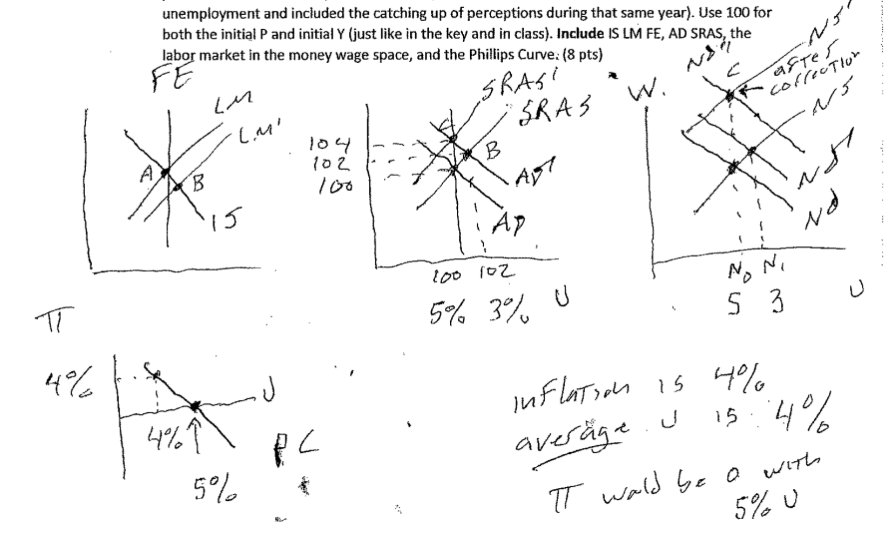 unemployment and included the catching up of perceptions during that same year). Use 100 for
both the initial P and initial Y (just like in the key and in class). Include IS LM FE, AD SRAS, the
labor market in the money wage space, and the Phillips Curve. (8 pts)
FE
LM
LM'
A
B
IS
SRAS'
SRAS
104
102
100
C
B
AD'
AD
100 102
5% 3% U
W.
ND"
C
NS'
after
correction
NS
ND'
ND
N0 N1
5 3 U
π
4%
C
U
4% ↑
5%
PC
inflation is 4%
average U is 4%
π would be 0 with
5% U